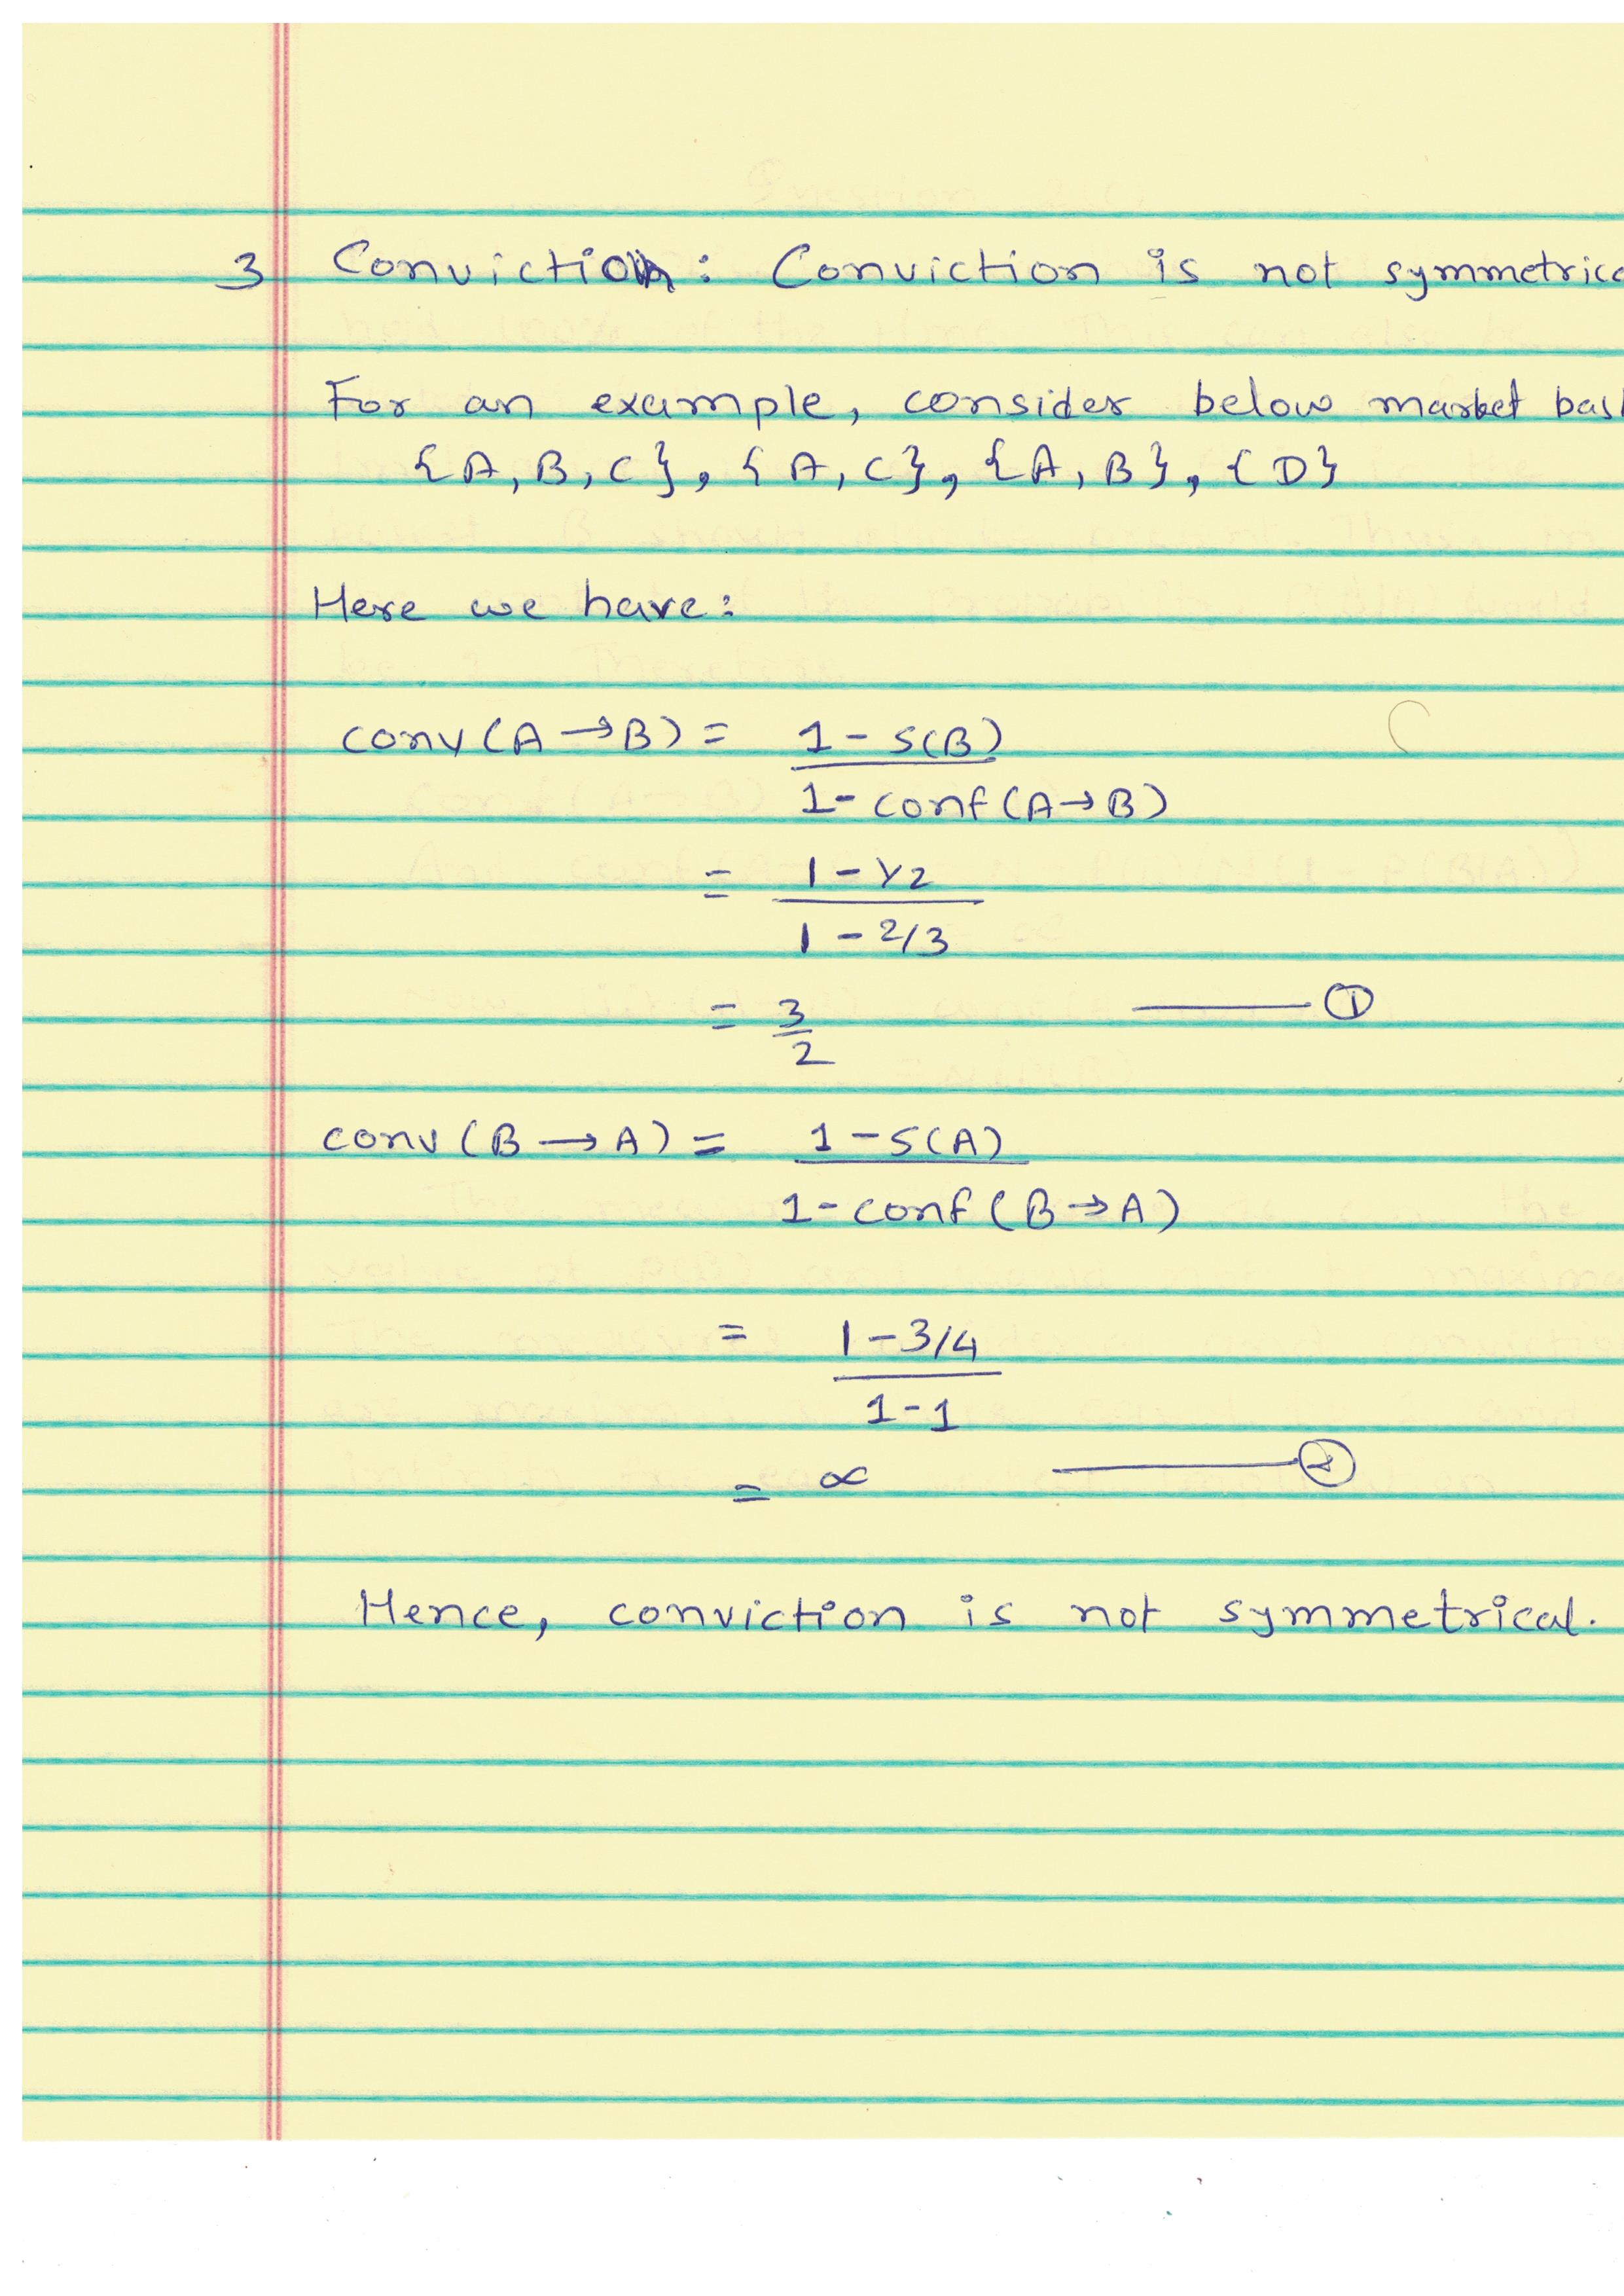 3 Conviction: Conviction is not symmetric
For an example, consider below market bas
{A, B, C}, {A, C}, {A, B}, {D}
Here we have:
conv(A→B) = 1 - S(B)
1 - conf(A→B)
= 1 - 1/2
1 - 2/3
= 3 ——— ①
2
conv(B→A) = 1 - S(A)
1 - conf(B→A)
= 1 - 3/4
1 - 1
= ∝ ——— ②
Hence, conviction is not symmetrical.